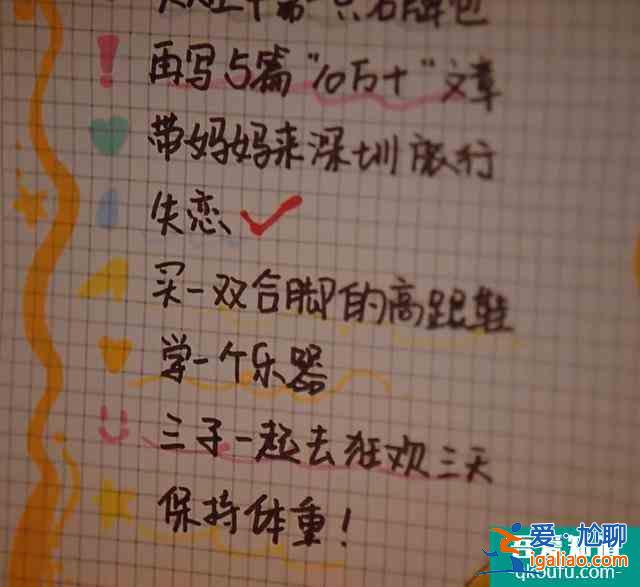 再写5篇“10万+”文章
带妈妈来深圳旅行
失恋
买一双合脚的高跟鞋
学一个乐器
三子一起去狂欢三天
保持体重！
爱.尬聊
igaliao.com
qkoufu.com